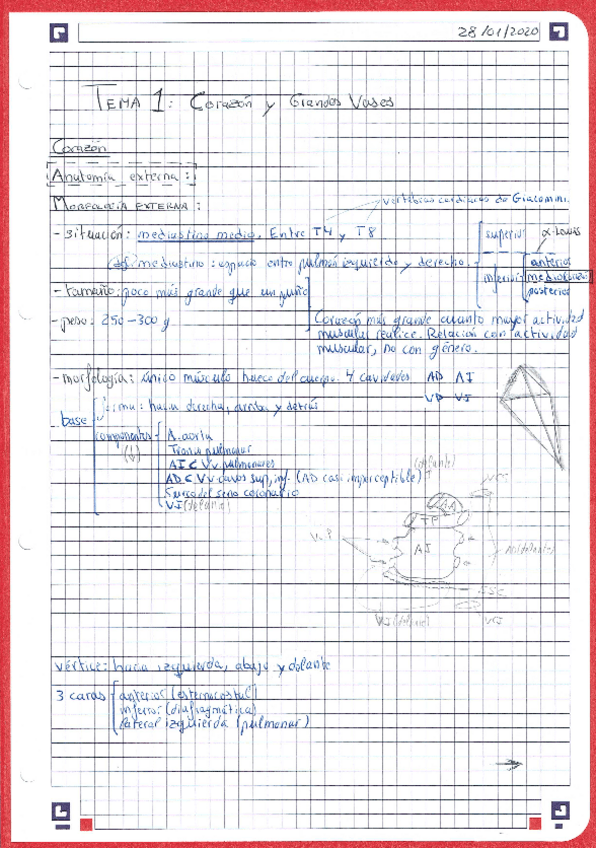 28/01/2020
TEMA 1: Corazón y Grandes Vasos
Corazón
Anatomía externa:
MORFOLOGÍA EXTERNA:
vértebras cardíacas de Giacomini.
- situación: mediastino medio. Entre T4 y T8
superior
mediastino: espacio entre pulmón izquierdo y derecho.
inferior
anterior
medio
posterior
- tamaño: poco más grande que un puño
- peso: 250-300 g
Corazón más grande cuanto mayor actividad
muscular realice. Relación con actividad
muscular, no con género.
- morfología: único músculo hueco del cuerpo. 4 cavidades AD AI
VD VI
base
hacia derecha, arriba y detrás
componentes
(6)
A. aorta
Tronco pulmonar
AI c Vv. pulmonares
AD c Vv. cavas sup, inf. (AD casi imperceptible)
Surco del seno coronario
VI (delante)
(delante)
AA
TP
AI
AD (delante)
SSC
VCI
vértice: hacia izquierda, abajo y delante
3 caras
anterior (esternocostal)
inferior (diafragmática)
lateral izquierda (pulmonar)